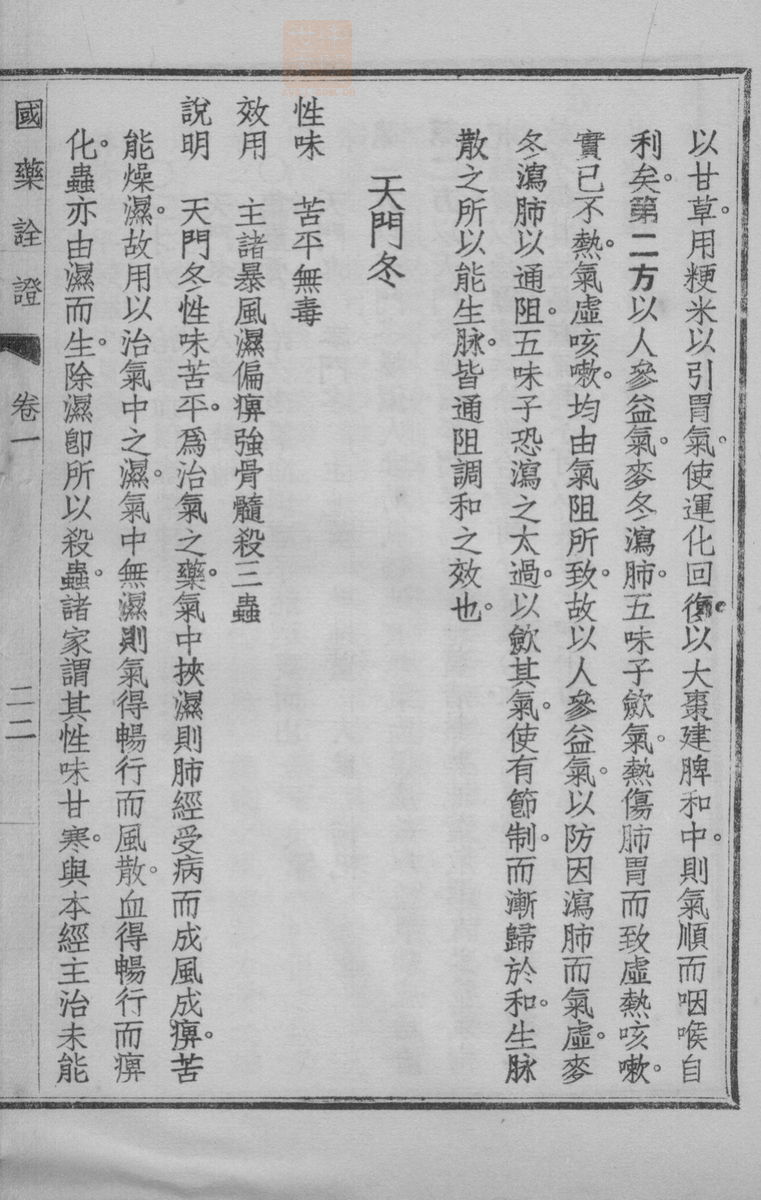 以甘草。用粳米以引胃氣。使運化回復。以大棗建脾和中。則氣順而咽喉自
利矣。第二方以人參益氣。麥冬瀉肺。五味子歛氣。熱傷肺胃而致虛熱咳嗽。
實已不熱。氣虛咳嗽。均由氣阻所致。故以人參益氣。以防因瀉肺而氣虛。麥
冬瀉肺以通阻。五味子恐瀉之太過。以歛其氣。使有節制。而漸歸於和。生脉
散之所以能生脉。皆通阻調和之效也。
天門冬
性味　苦平無毒
效用　主諸暴風濕偏痹強骨髓殺三蟲
說明　天門冬性味苦平。爲治氣之藥。氣中挾濕則肺經受病而成風成痹。苦
能燥濕。故用以治氣中之濕。氣中無濕則氣得暢行而風散。血得暢行而痹
化。蟲亦由濕而生。除濕卽所以殺蟲。諸家謂其性味甘寒。與本經主治未能
國藥詮證　卷一　二二